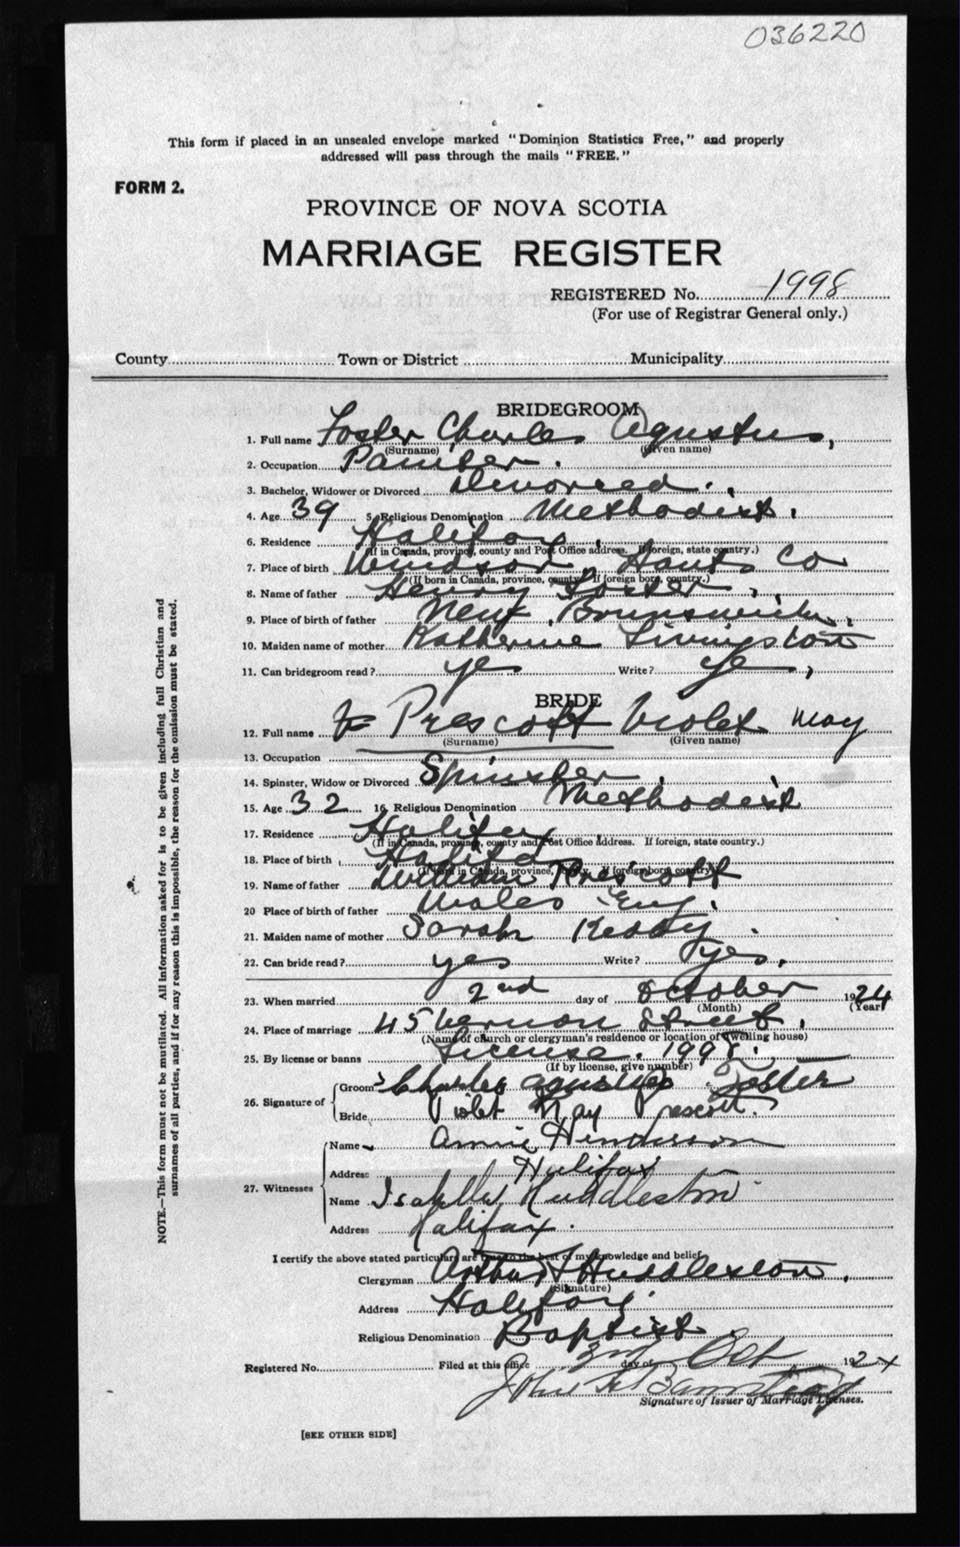 036220
This form if placed in an unsealed envelope marked "Dominion Statistics Free," and properly
addressed will pass through the mails "FREE."
FORM 2.
PROVINCE OF NOVA SCOTIA
MARRIAGE REGISTER
REGISTERED No. 1998
(For use of Registrar General only.)
County Town or District Municipality
BRIDEGROOM
1. Full name Foster Charles Agustus,
(Surname) (Given name)
2. Occupation Painter.
3. Bachelor, Widower or Divorced Divorced.
4. Age 39 5. Religious Denomination Methodist.
6. Residence Halifax.
(If in Canada, province, county and Post Office address. If foreign, state country.)
7. Place of birth Windsor, Hants Co
(If born in Canada, province, county. If foreign born, country.)
8. Name of father Henry Foster,
9. Place of birth of father New Brunswick.
10. Maiden name of mother Katherine Livingston
11. Can bridegroom read? ye Write? ye,
BRIDE
12. Full name Prescott Violet May
(Surname) (Given name)
13. Occupation
14. Spinster, Widow or Divorced Spinster.
15. Age 32 16. Religious Denomination Methodist
17. Residence Halifax
(If in Canada, province, county and Post Office Address. If foreign, state country.)
18. Place of birth Halifax
(If born in Canada, province, county. If foreign born country)
19. Name of father William Prescott
20 Place of birth of father Wales Eng.
21. Maiden name of mother Sarah Keddy.
22. Can bride read? yes Write? yes.
23. When married 2nd day of October 1924
(Month) (Year)
24. Place of marriage 45 Vernon Street.
(Name of church or clergyman's residence or location of dwelling house)
25. By license or banns License. 1998.
(If by license, give number)
26. Signature of Groom Charles Agustus Foster
Bride Violet May Prescott.
27. Witnesses Name Annie Henderson
Address Halifax
Name Isabelle Huddleston
Address Halifax.
I certify the above stated particulars are true to the best of my knowledge and belief.
Clergyman Arthur Huddleston.
(Signature)
Address Halifax.
Religious Denomination Baptist.
Registered No. Filed at this office 3rd day of Oct 1924
John
Signature of Issuer of Marriage Licenses.
[SEE OTHER SIDE]
NOTE.—This form must not be mutilated. All information asked for is to be given including full Christian and
surnames of all parties, and if for any reason this is impossible, the reason for the omission must be stated.